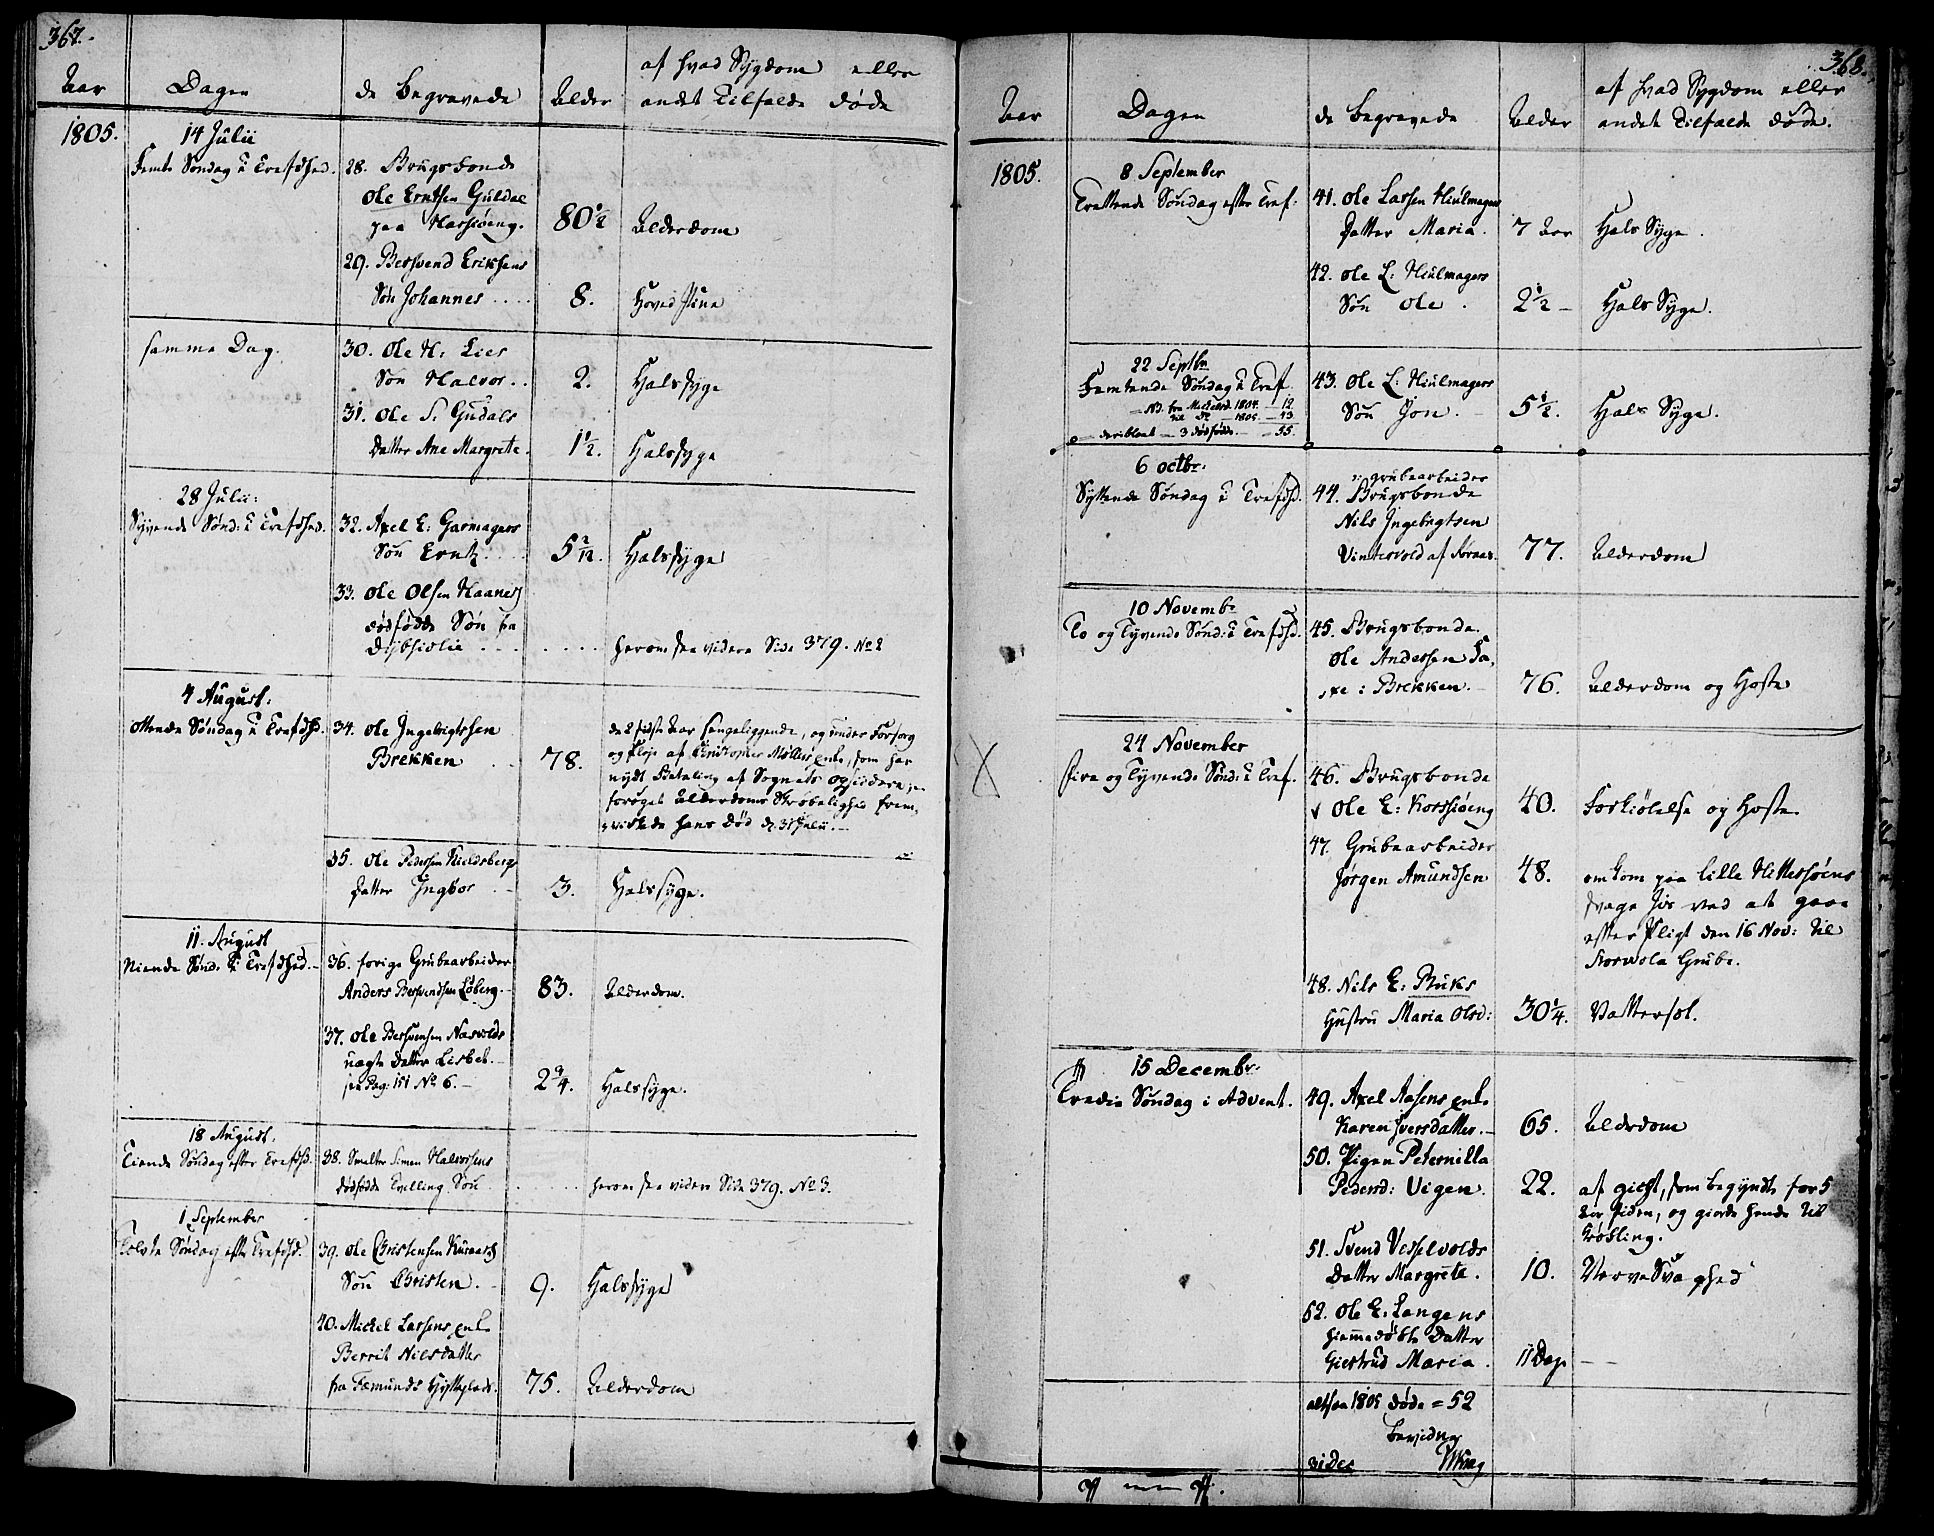 367.
Aar
Dagen
de Begravede
Alder
af hvad Sygdom eller
andet Tilfælde døde
1805.
14 Julii
Femte Søndag e Trefdhed.
28. Brugsbonde
Ole Erntsen Guldal
paa Harsiøeng.
80½
Alderdom
29. Bersvend Eriksens
Søn Johannes
8.
Hoved Pine
samme Dag.
30. Ole H: Lies
Søn Halvor.
2.
Halssyge
31. Ole S. Gudals
Datter Ane Margrete.
1½.
Halssyge
28 Julii:
Syvende Sønd: e Trefdhed.
32. Axel E: Garmagers
Søn Erntz.
5 2/12.
Halssyge
33. Ole Olsen Haanes
dødfødde Søn fra
Dybsiølie
herom see videre Side 379. No 2
4 August:
Ottende Søndag e Trefdhd.
34. Ole Ingebrigtssen
Brekken
78.
de 2 sidste Aar sengeliggende, og under Forsorg
og Pleje af Christopher Møllers Enke, som har
nydt Betaling af Sognets Opsiddere;
forøget Alderdoms Skrøbelighed frem,
virkede hans Død d. 31 Julii.
35. Ole Pedersen Kieldsbergs
Datter Ingbor
3.
Halssyge.
11. August
Niende Sønd: e Trefdhed.
36. forige Grubearbeider
Anders Bersvendsen Løberg.
83.
Alderdom.
37. Ole Bersvensen Narvolds
uægte Datter Lisbet.
see Pag: 151 No 6.
2¾.
Halssyge.
18 August.
Tiende Søndag efter Trefdhd.
38. Smelter Simen Halvorsens
dødfødde Tvilling Søn
herom see videre Side 379. No 3.
1 September
Tolvte Søndag efter Trefdhd.
39. Ole Christensen Kuraas
Søn Christen.
9.
Halssyge
40. Mickel Larsens Enke
Berrit Nilsdatter
fra Fæmunds Hytteplads.
75.
Alderdom
368.
Aar
Dagen
de Begravede
Alder
af hvad Sygdom eller
andet Tilfælde døde.
1805.
8 September
Trettende Søndag efter Tref:
41. Ole Larsen Hiulmagers
Datter Maria.
7 Aar
Hals Syge.
42. Ole L: Hiulmagers
Søn Ole.
2½
Hals Syge.
22 Septbr
Femtende Søndag e Tref.
NB. fra Mickelsd. 1804. 12
til dto 1805. 43
deriblant 3 dødfødde. 55.
43. Ole L: Hiulmagers
Søn Jon.
5½.
Hals Syge.
6 Octbr.
Syttende Søndag e Trefdhd.
44. Brugsbonde
grubearbeider
Nils Ingebrigtsen
Vintervold af Røraas.
77.
Alderdom
10 Novembr
To og Tyvende Sønd: e Trefdhd.
45. Brugsbonde
Ole Andersen Fa,
xe i Brekken.
76.
Alderdom og Hoste
24 November
Fire og Tyvende Sønd: e Tref.
46. Brugsbonde
Ole E: Korssiøeng
40.
Forkiølelse og Hoste
47. Grubearbeider
Jørgen Amundsen
48.
omkom paa lille Hittersøens
svage Iis ved at gaae
efter Pligt den 16 Nov: til
Storvola Grube.
48. Nils E: Buks
Hustru Maria Olsd:
30¼.
Vattersot.
15 Decembr.
Tredie Søndag i Advent.
49. Axel Aasens Enke
Karen Iversdatter.
65.
Alderdom
50. Pigen Peternilla
Pedersd: Vigen.
22.
af Gicht, som begyndte for 5
Aar siden, og giorde hende til
Krøbling.
51. Svend Vesselvolds
Datter Margrete.
10.
Nerve Svaghed
52. Ole E: Langens
hiemmedøbte Datter
Giertrud Maria.
11 Dage
altsaa 1805 døde = 52
bevidner